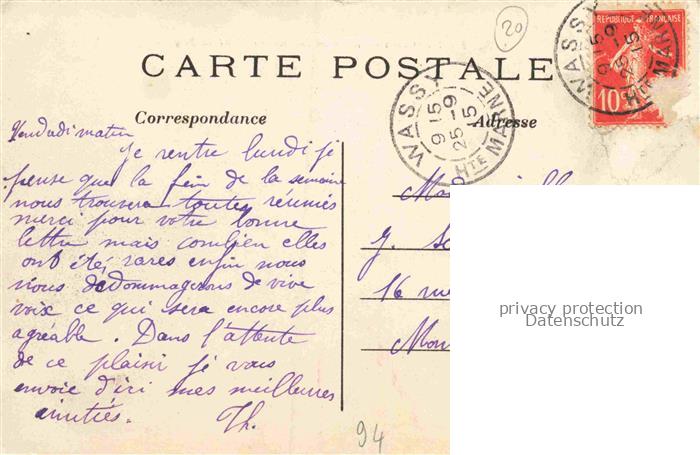 20
REPUBLIQUE FRANÇAISE
10
WASSY
9 15
25 -9
15
Hte MARNE
CARTE POSTALE
WASSY
9 15
25 -9
15
Hte MARNE
Correspondance
Adresse
Vendredi matin
Je rentre lundi je
pense que la fin de la semaine
nous trouvera toutes réunies
merci pour votre bonne
lettre mais combien elles
ont étés rares enfin nous
nous dedommagerons de vive
voix ce qui sera encore plus
agréable. Dans l'attente
de ce plaisir je vous
envoie d'ici mes meilleures
amitiés. Th.
J. 
16 rue
94
privacy protection
Datenschutz